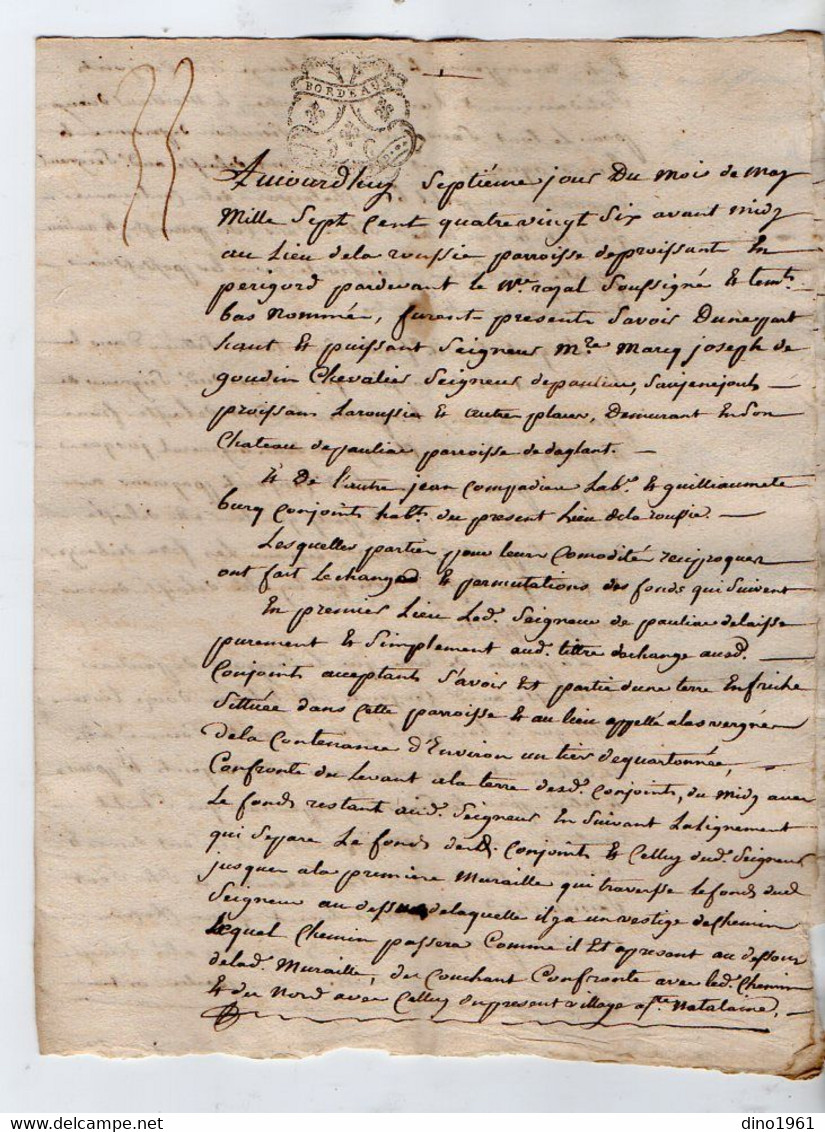 BORDEAUX
Aujourdhuy septiéme jour du mois de may
mille sept cent quatrevingt six avant midy
au lieu dela roussie parroisse deproissant en
perigord pardevant le nre. royal soussigné et temts.
bas nommés, furent presents savoir dune part
haut et puissant seigneur mre. marq joseph de
goudin chevalier seigneur depauliac,
proissans laroussie et autres places, demurant en son
chateau depauliac parroisse dedaglant. —
Et de l'autre jean compadieu labr. et guilliaumete
burg conjoints habts. du present lieu dela roussie. —
Lesquelles parties pour leurs comodités reciproques
ont fait lechange et permutations des fonds qui suivent
En premier lieu led. seigneur de pauliac delaisse
purement et simplement aud. tittre dechange ausd. —
conjoints acceptants s'avoir est partie dune terre enfriche
situuée dans cette parroisse et au lieu appellé alas vergnes
dela contenance d'environ un tier dequartonnée, —
confronte du levant ala terre desd. conjoints, du midy avec
le fonds restant aud. seigneur en suivant lalignement
qui separe le fonds desd. conjoints et celluy dud. seigneur
jusques ala premiere muraille qui traverse lefonds dud.
seigneur au dessus delaquelle il y a un vestige dechemin
lequel chemin passera comme il est apresent au dessous
delad. muraille, du couchant confronte avec led. chemin
et du nord avec celluy dupresent village a ste. natalaine, —
dino1961